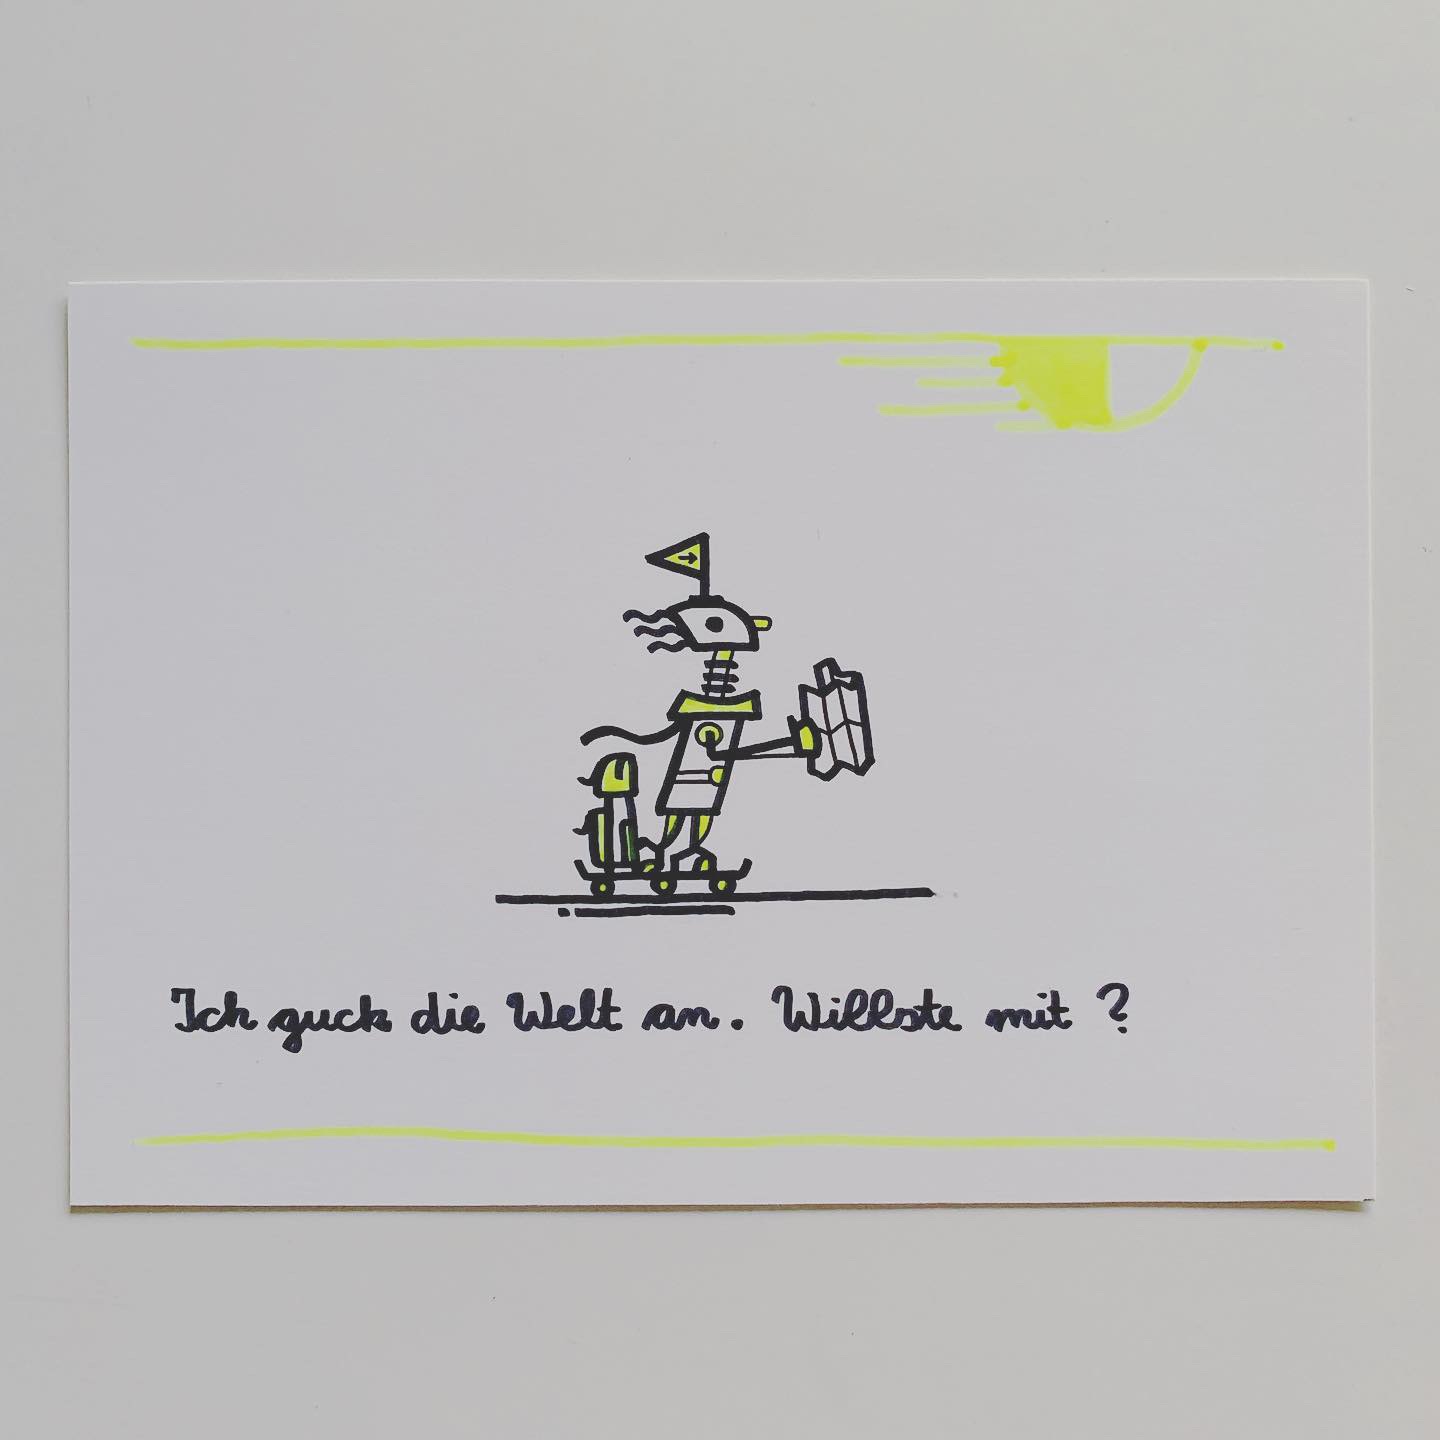 Ich guck die Welt an. Willste mit ?